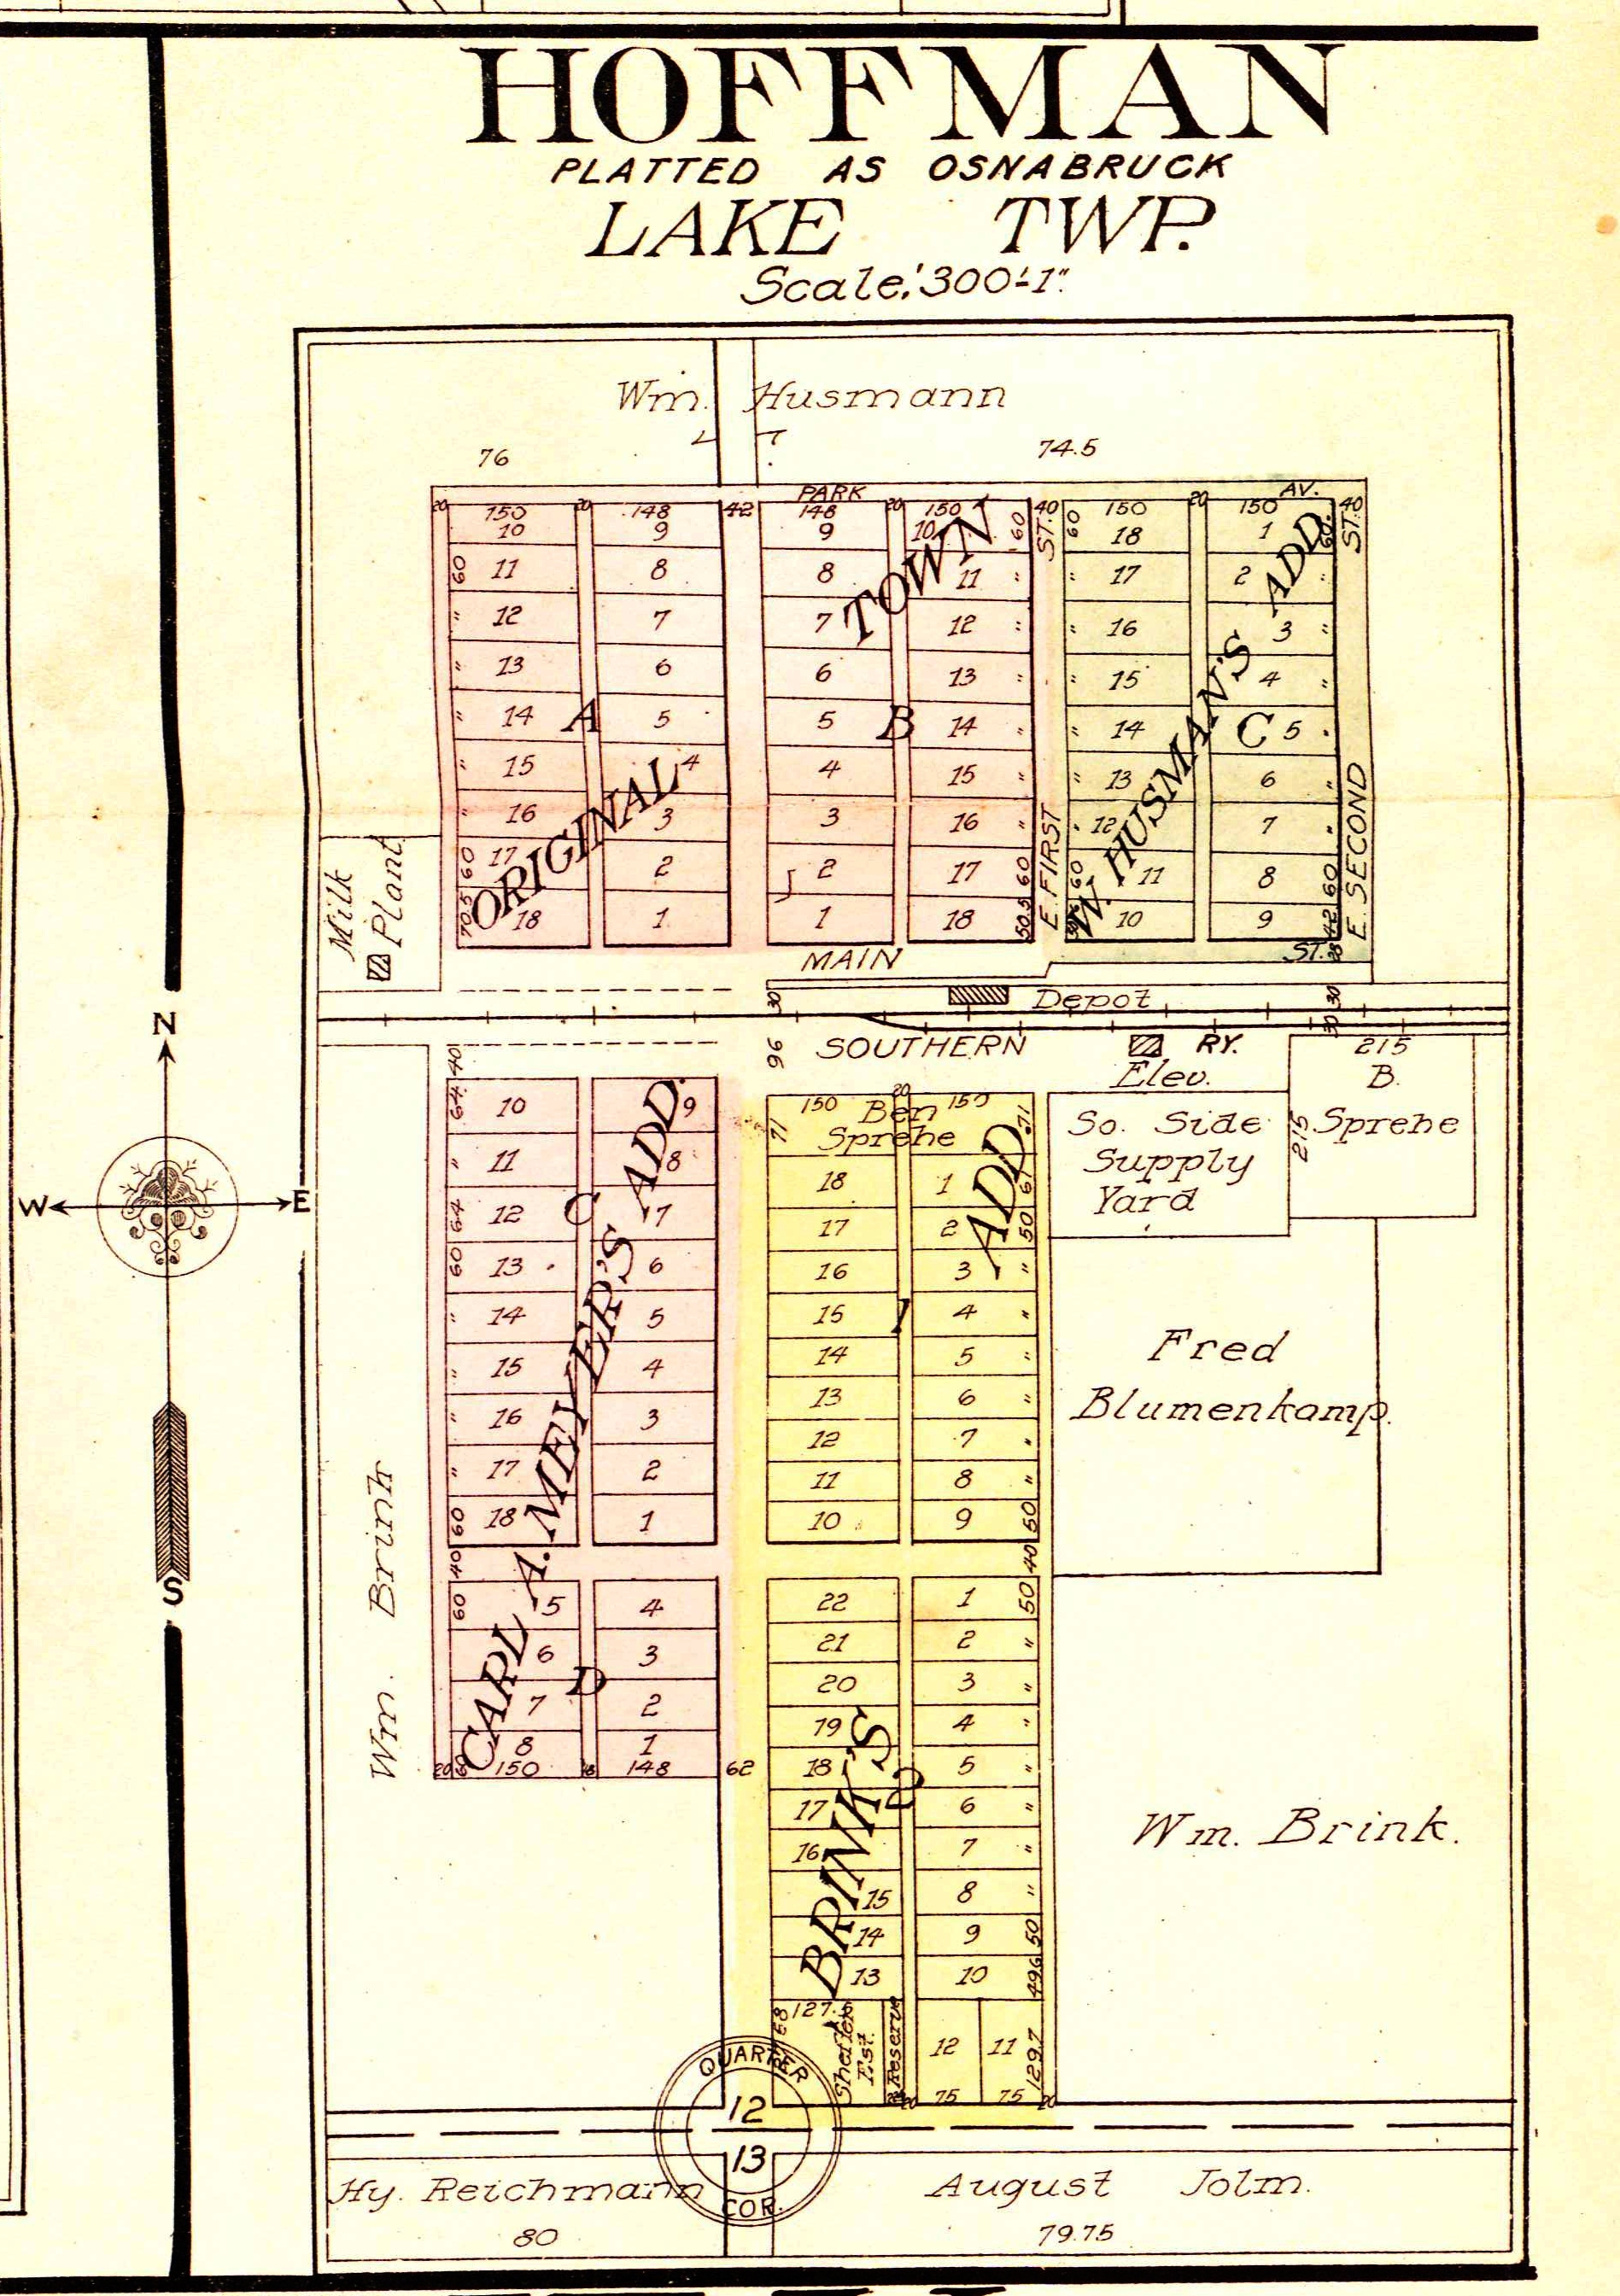 HOFFMAN
PLATTED AS OSNABRUCK
LAKE TWP.
Scale, 300'-1"
Wm. Husmann
76
74.5
PARK AV.
20 150 20 148 42 148 20 150 40 150 20 150 40
10 9 9 10 60 ST. 60 18 1 60 ST.
60 11 8 8 11 " " 17 2 "
" 12 7 7 12 " " 16 3 "
" 13 6 6 13 " " 15 4 "
" 14 A 5 5 B 14 " " 14 C 5 "
" 15 4 4 15 " " 13 6 "
" 16 3 3 16 " " 12 7 "
60 17 2 2 17 60 60 11 8 60
70.5 18 1 1 18 50.5 10 9 42
ORIGINAL TOWN
W. HUSMAN'S ADD.
E. FIRST
E. SECOND
Milk
Plant
MAIN ST.
30 Depot 30
30
N
W E
S
96 SOUTHERN RY.
Elev.
215
B.
Sprehe
215
So. Side
Supply
Yard
40
64 10 9
" 11 8
64 12 C 7
60 13 6
" 14 5
" 15 4
" 16 3
" 17 2
60 18 1
40
60 5 4
6 3
7 D 2
8 1
20 60 150 148 62
CARL A. MEYER'S ADD.
20
150 Ben 150
71 Sprehe 71
18 1 61
17 2 50
16 3 "
15 1 4 "
14 5 "
13 6 "
12 7 "
11 8 "
10 9 50
40
22 1 50
21 2 "
20 3 "
19 4 "
18 5 "
17 2 6 "
16 7 "
15 8 "
14 9 50
13 10 49.6
BRINK'S ADD.
127.5
Est.
Reserve
12 11 129.7
20 75 75 20
Fred
Blumenkamp.
Wm. Brink
Wm. Brink.
QUARTER
12
13
COR.
Hy. Reichmann
80
August Jolm.
79.75